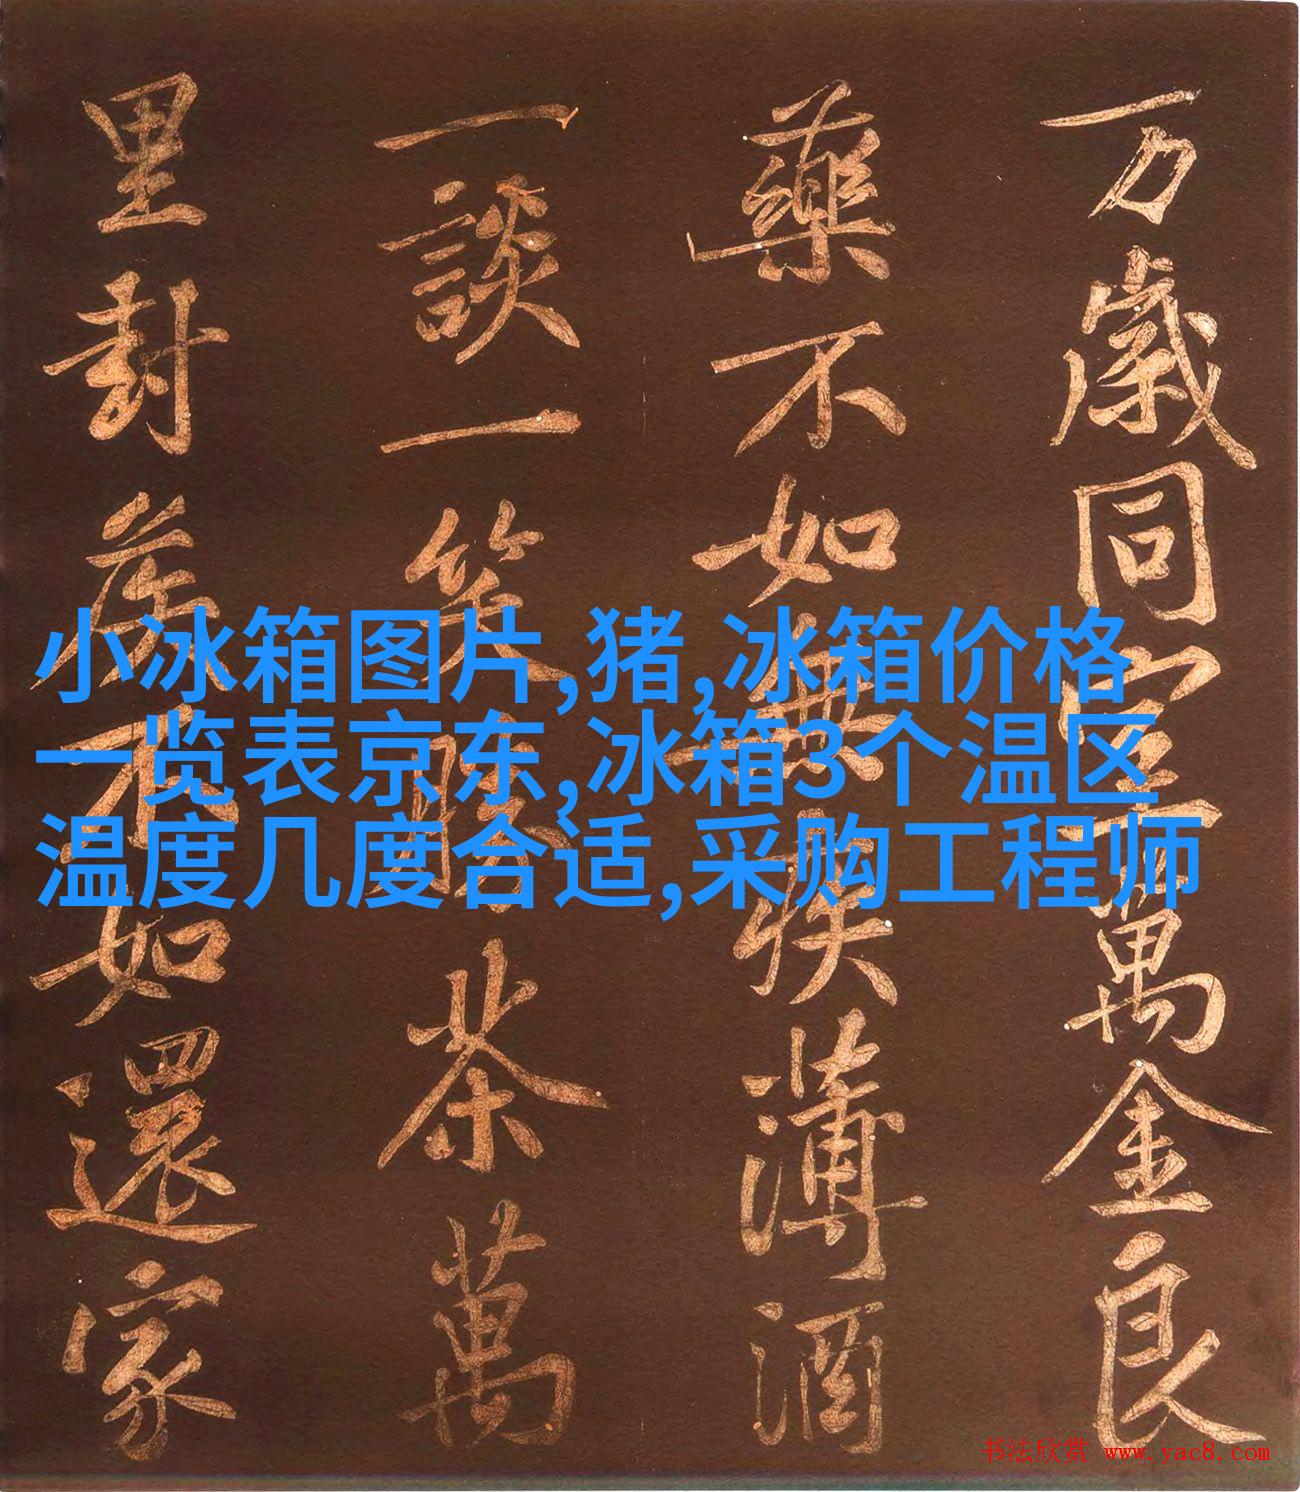 万歲同室萬金良
藥不如無疾薄酒
一談一笑勝茶萬
里封矦不如還家
小冰箱图片,猪,冰箱价格
一览表京东,冰箱3个温区
温度几度合适,采购工程师
书法欣赏 www.yac8.com